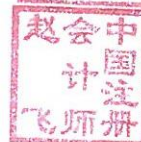 中国注册
会计师
赵飞